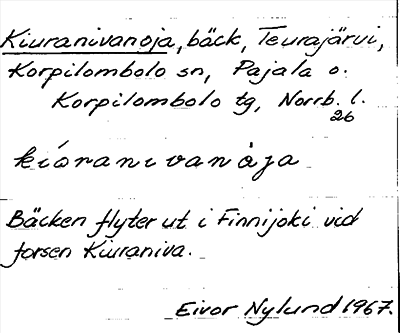 Kiuranivanoja, bäck, Teurajärvi,
Korpilombolo sn, Pajala o.
Korpilombolo tg, Norrb. l.
26
kiȯranivanȧja
Bäcken flyter ut i Finnijoki vid
forsen Kiuraniva.
Eivor Nylund 1967.